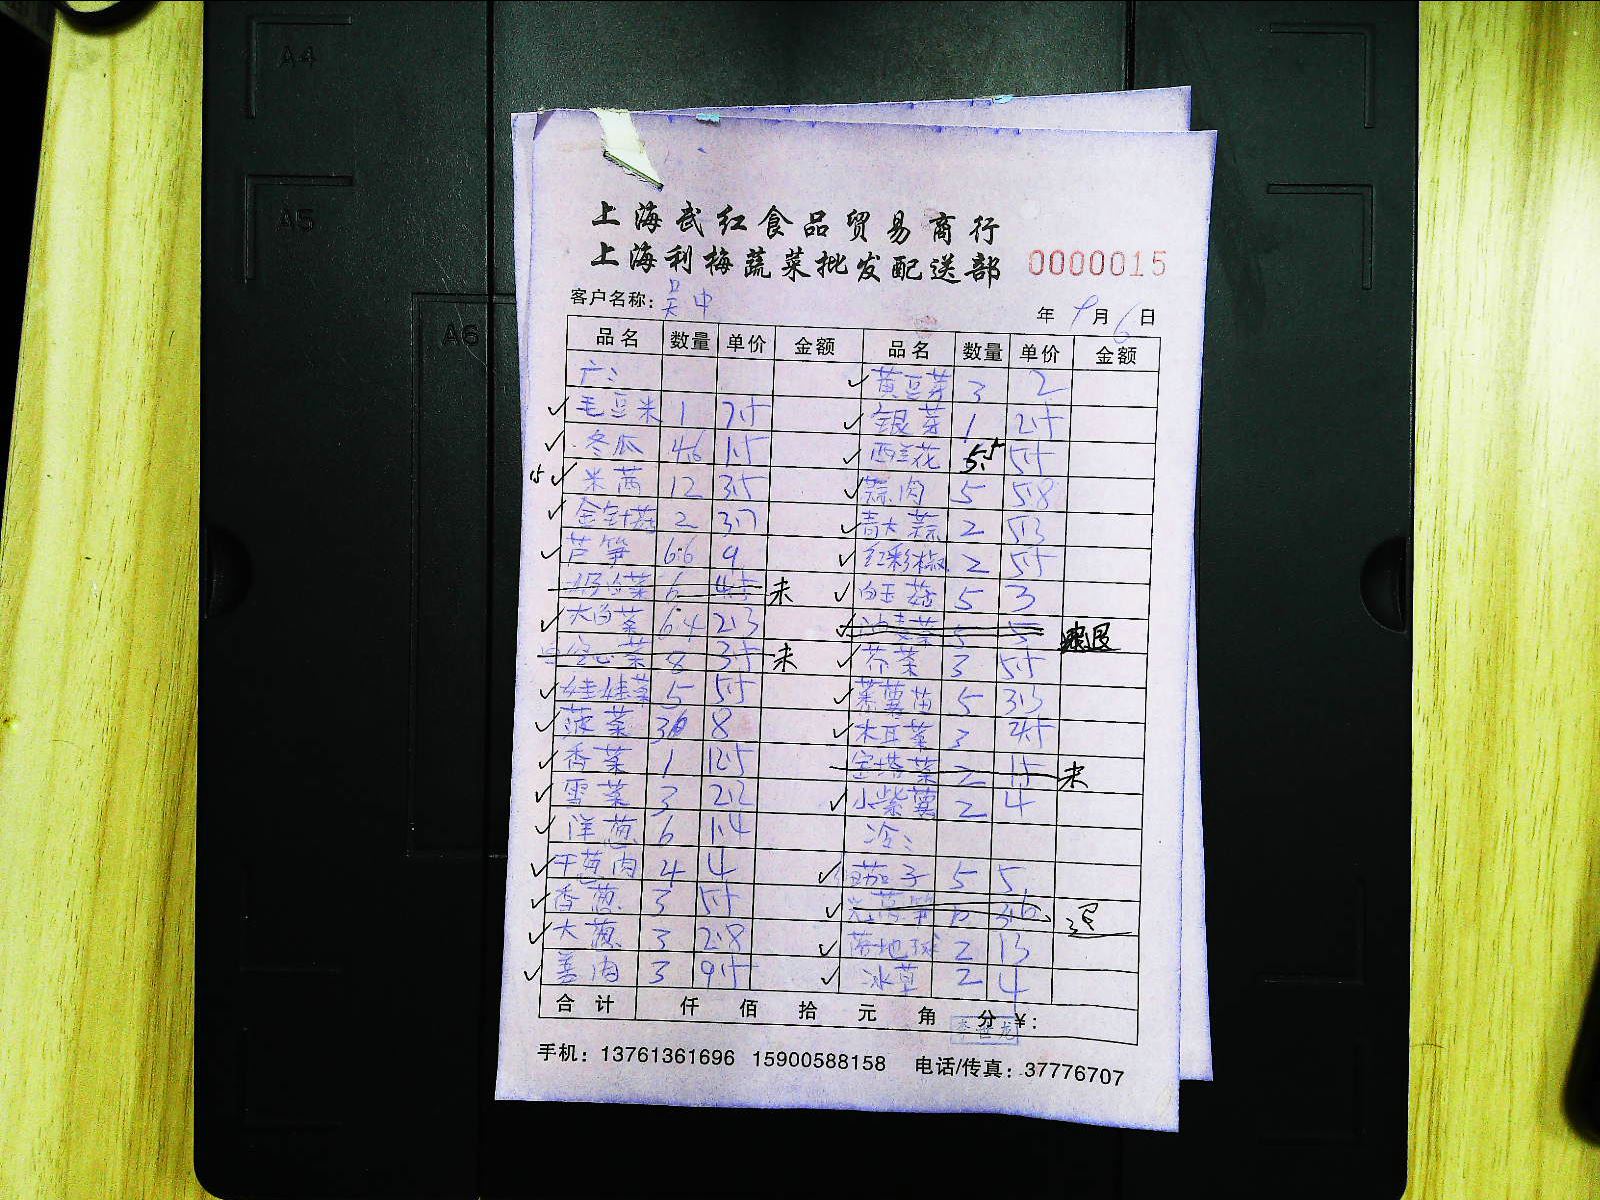 A4
A5
A6
上海武红食品贸易商行
上海利梅蔬菜批发配送部 0000015
客户名称：吴中 年 9月6日
品名 数量 单价 金额 品名 数量 单价 金额
广： ✓黄豆芽 3 2
✓毛豆米 1 7.5 ✓银芽 1 2.5
✓冬瓜 46 1.5 ✓西兰花 5.5 5.5
15 ✓米苋 12 3.5 ✓蒜肉 5 5.8
✓金针菇 2 3.7 ✓青大蒜 2 5.3
✓芦笋 6.6 9 ✓红彩椒 2 5.5
奶白菜 6 4.5 未 ✓白玉菇 5 3
✓大白菜 6.4 2.3 ✓油麦菜 5 5 退
空心菜 8 3.5 未 ✓芥菜 3 5.5
✓娃娃菜 5 5.5 ✓菜薯苗 5 3.3
✓菠菜 30 8 ✓木耳菜 3 4.5
✓香菜 1 12.5 宝塔菜 2 15 未
✓雪菜 3 2.2 ✓小紫薯 2 4
✓洋葱 6 1.4 冷：
✓干葱肉 4 4 ✓茄子 5 5
✓香葱 3 5.5 ✓莴笋 6 3.6 退
✓大葱 3 2.8 ✓落地球 2 13
✓姜肉 3 9.5 ✓冰草 2 4
合计 仟 佰 拾 元 角 分 ¥：
李世龙
手机：13761361696 15900588158 电话/传真：37776707